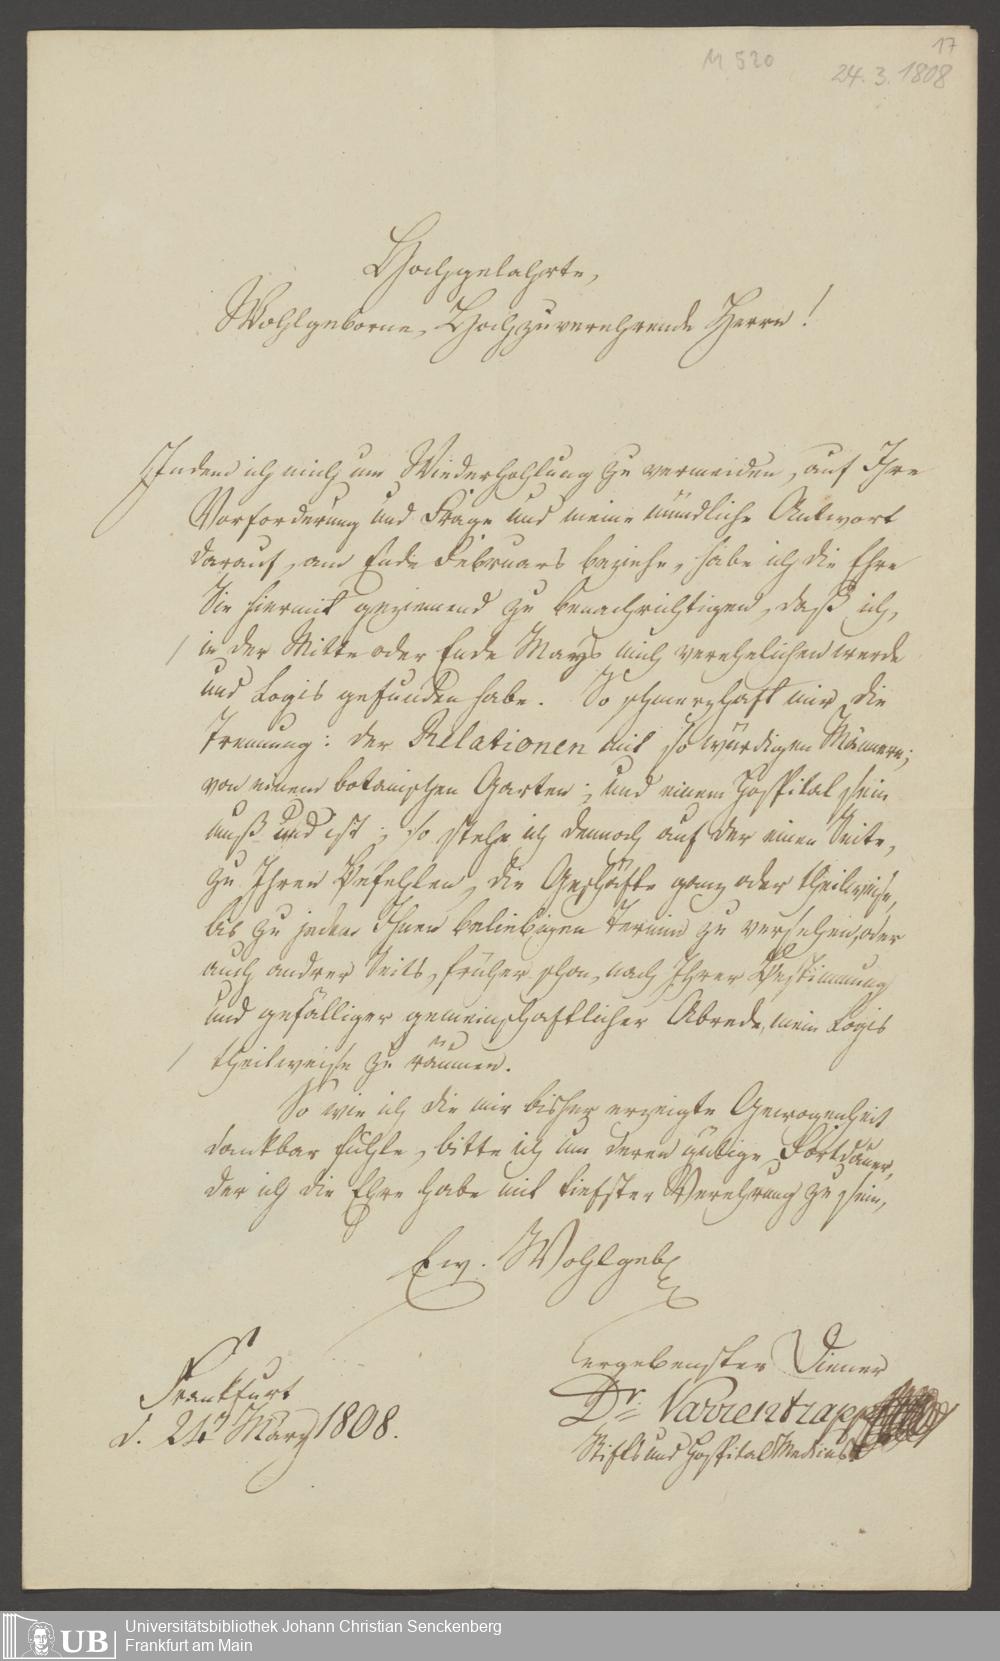 17
M 520
24.3.1808
Hochgelahrte,
Wohlgeborne, Hochzuverehrende Herrn!
Indem ich mich um Wiederhohlung zu vermeiden, auf Ihre
Vorforderung und Frage und meine mündliche Antwort
darauf, am Ende Februars beziehe, habe ich die Ehre
Sie hiermit geziemend zu benachrichtigen, daß ich,
in der Mitte oder Ende Mays mich verehelichen werde
und Logis gefunden habe. So schmerzhaft mir die
Trennung: der Relationen mit so würdigen Männern;
von einem botanischen Garten; und einem Hospital sein
muß und ist; so stehe ich dennoch auf der einen Seite,
zu Ihren Befehlen, die Geschäfte ganz oder theilweise,
bis zu jedem Ihnen beliebigen Termin zu versehen, oder
auch andrer Seits, früher schon, nach Ihrer Bestimmung
und gefälliger gemeinschaftlicher Abrede, mein Logis
theilweise zu räumen.
So wie ich die mir bisher erzeigte Gewogenheit
dankbar fühle, bitte ich um deren gütige Fortdauer,
der ich die Ehre habe mit tiefster Verehrung zu sein,
Ew. Wohlgeb
ergebenster Diener
Frankfurt
Dr. Varrentrapp
d. 24t März 1808.
Stifts und Hospital Medicus
Universitätsbibliothek Johann Christian Senckenberg
UB
Frankfurt am Main